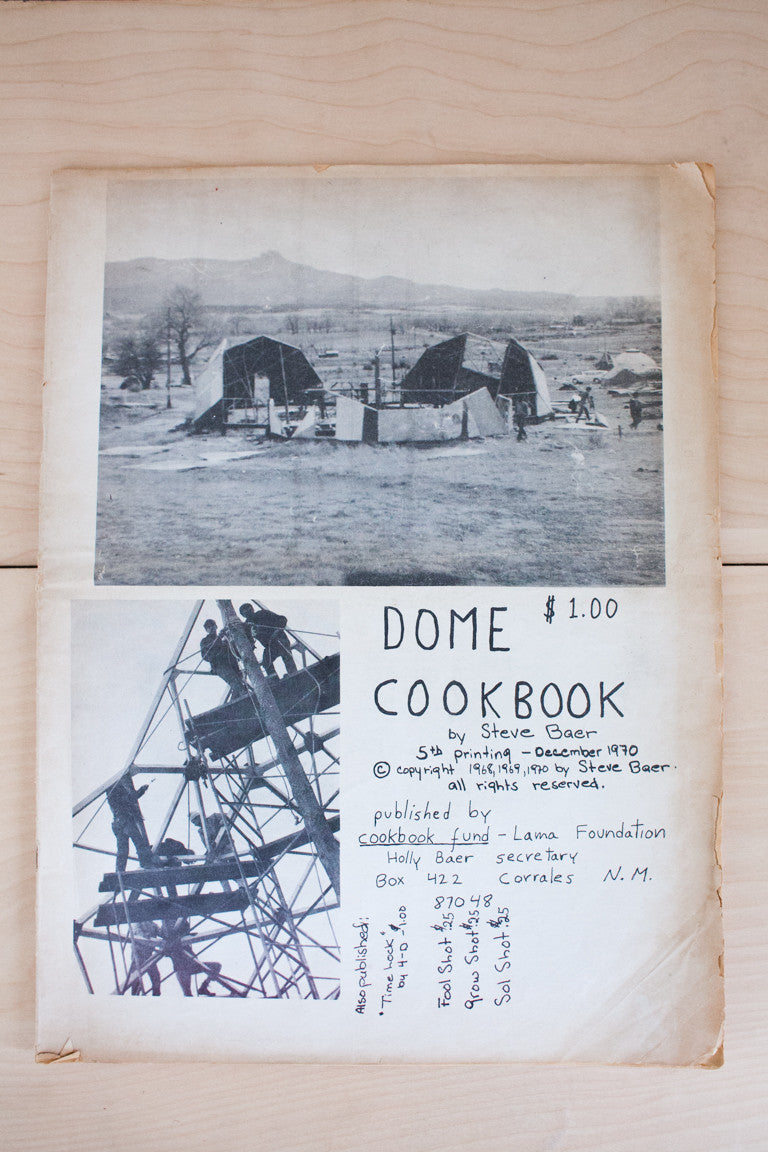 DOME $1.00
COOKBOOK
by Steve Baer
5th printing - December 1970
© copyright 1968, 1969, 1970 by Steve Baer.
all rights reserved.
published by
cookbook fund - Lama Foundation
Holly Baer secretary
Box 422 Corrales N.M.
87048
Also published:
"Time Lock" $1.00
by H-D
Fool Shot $.25
grow Shot $.25
Sol Shot $.25